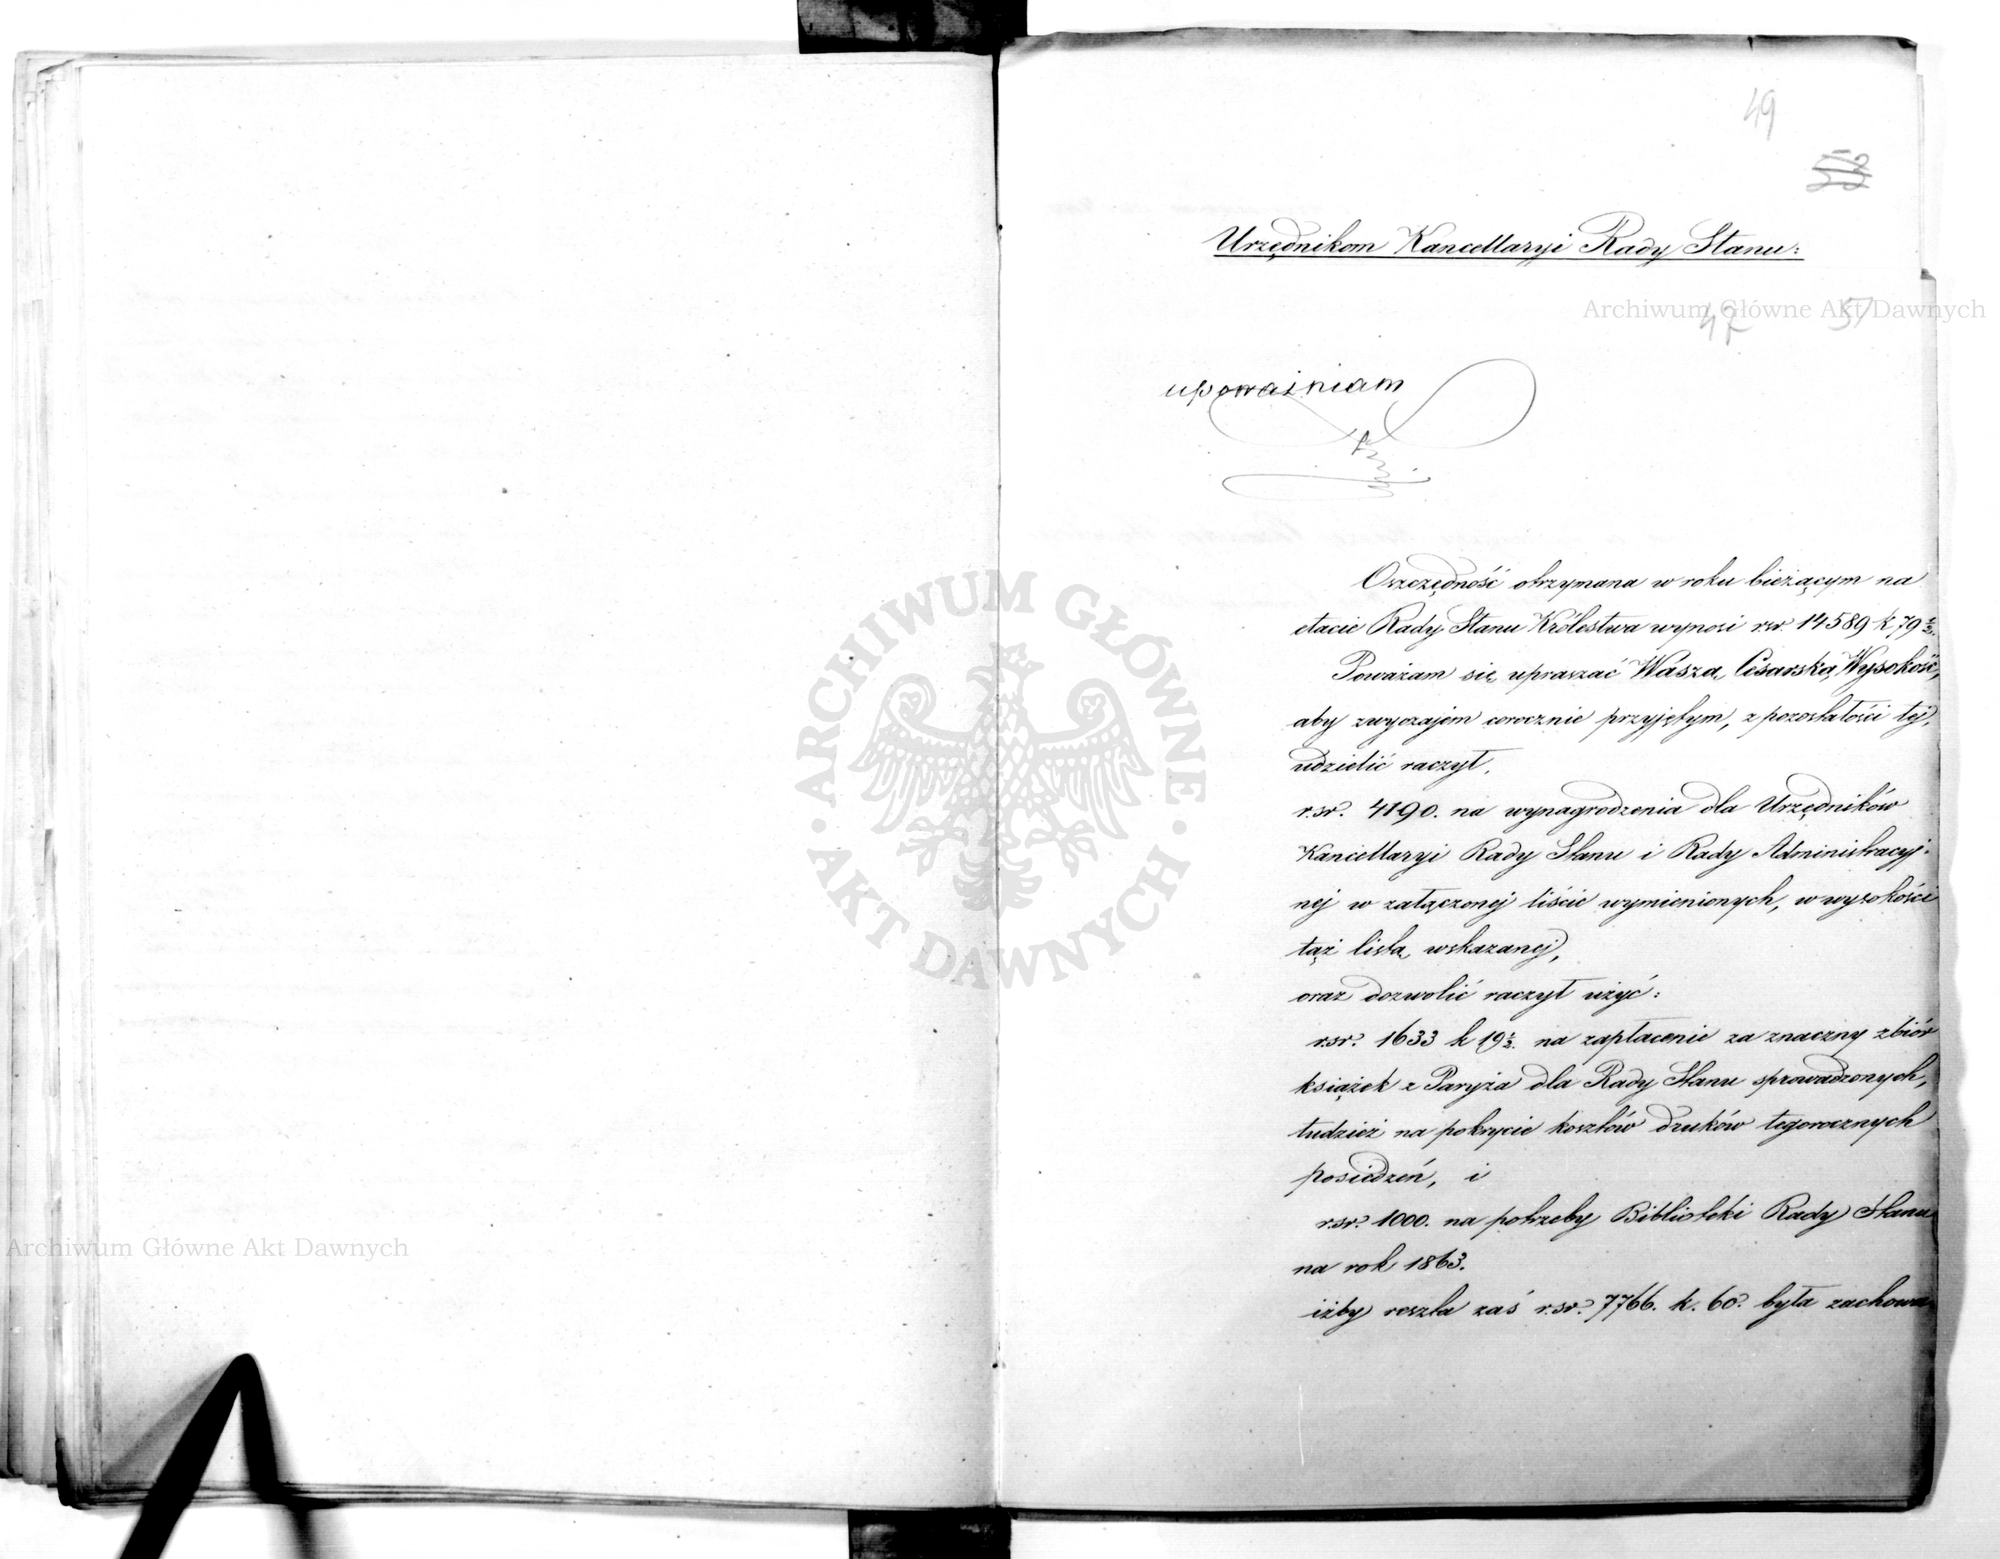 49
53
Urzędnikom Kancellaryi Rady Stanu:
Archiwum Główne Akt Dawnych
47 57
upoważniam
Oszczędność otrzymana w roku bieżącym na
etacie Rady Stanu Królestwa wynosi rsr. 14589 k 79½.
Poważam się upraszać Waszą Cesarską Wysokość,
aby zwyczajem corocznie przyjętym, z pozostałości tej,
udzielić raczył,
r.sr. 4190. na wynagrodzenia dla Urzędników
Kancellaryi Rady Stanu i Rady Administracyj-
nej w załączonej liście wymienionych, w wysokości
tąż listą wskazanej,
oraz dozwolić raczył użyć:
rsr. 1633 k 19½. na zapłacenie za znaczny zbiór
książek z Paryża dla Rady Stanu sprowadzonych,
tudzież na pokrycie kosztów druków tegorocznych
posiedzeń, i
rsr. 1000. na potrzeby Biblioteki Rady Stanu
na rok 1863.
iżby reszta zaś r.sr. 7766. k. 60. była zachowa
ARCHIWUM GŁÓWNE
AKT DAWNYCH
Archiwum Główne Akt Dawnych